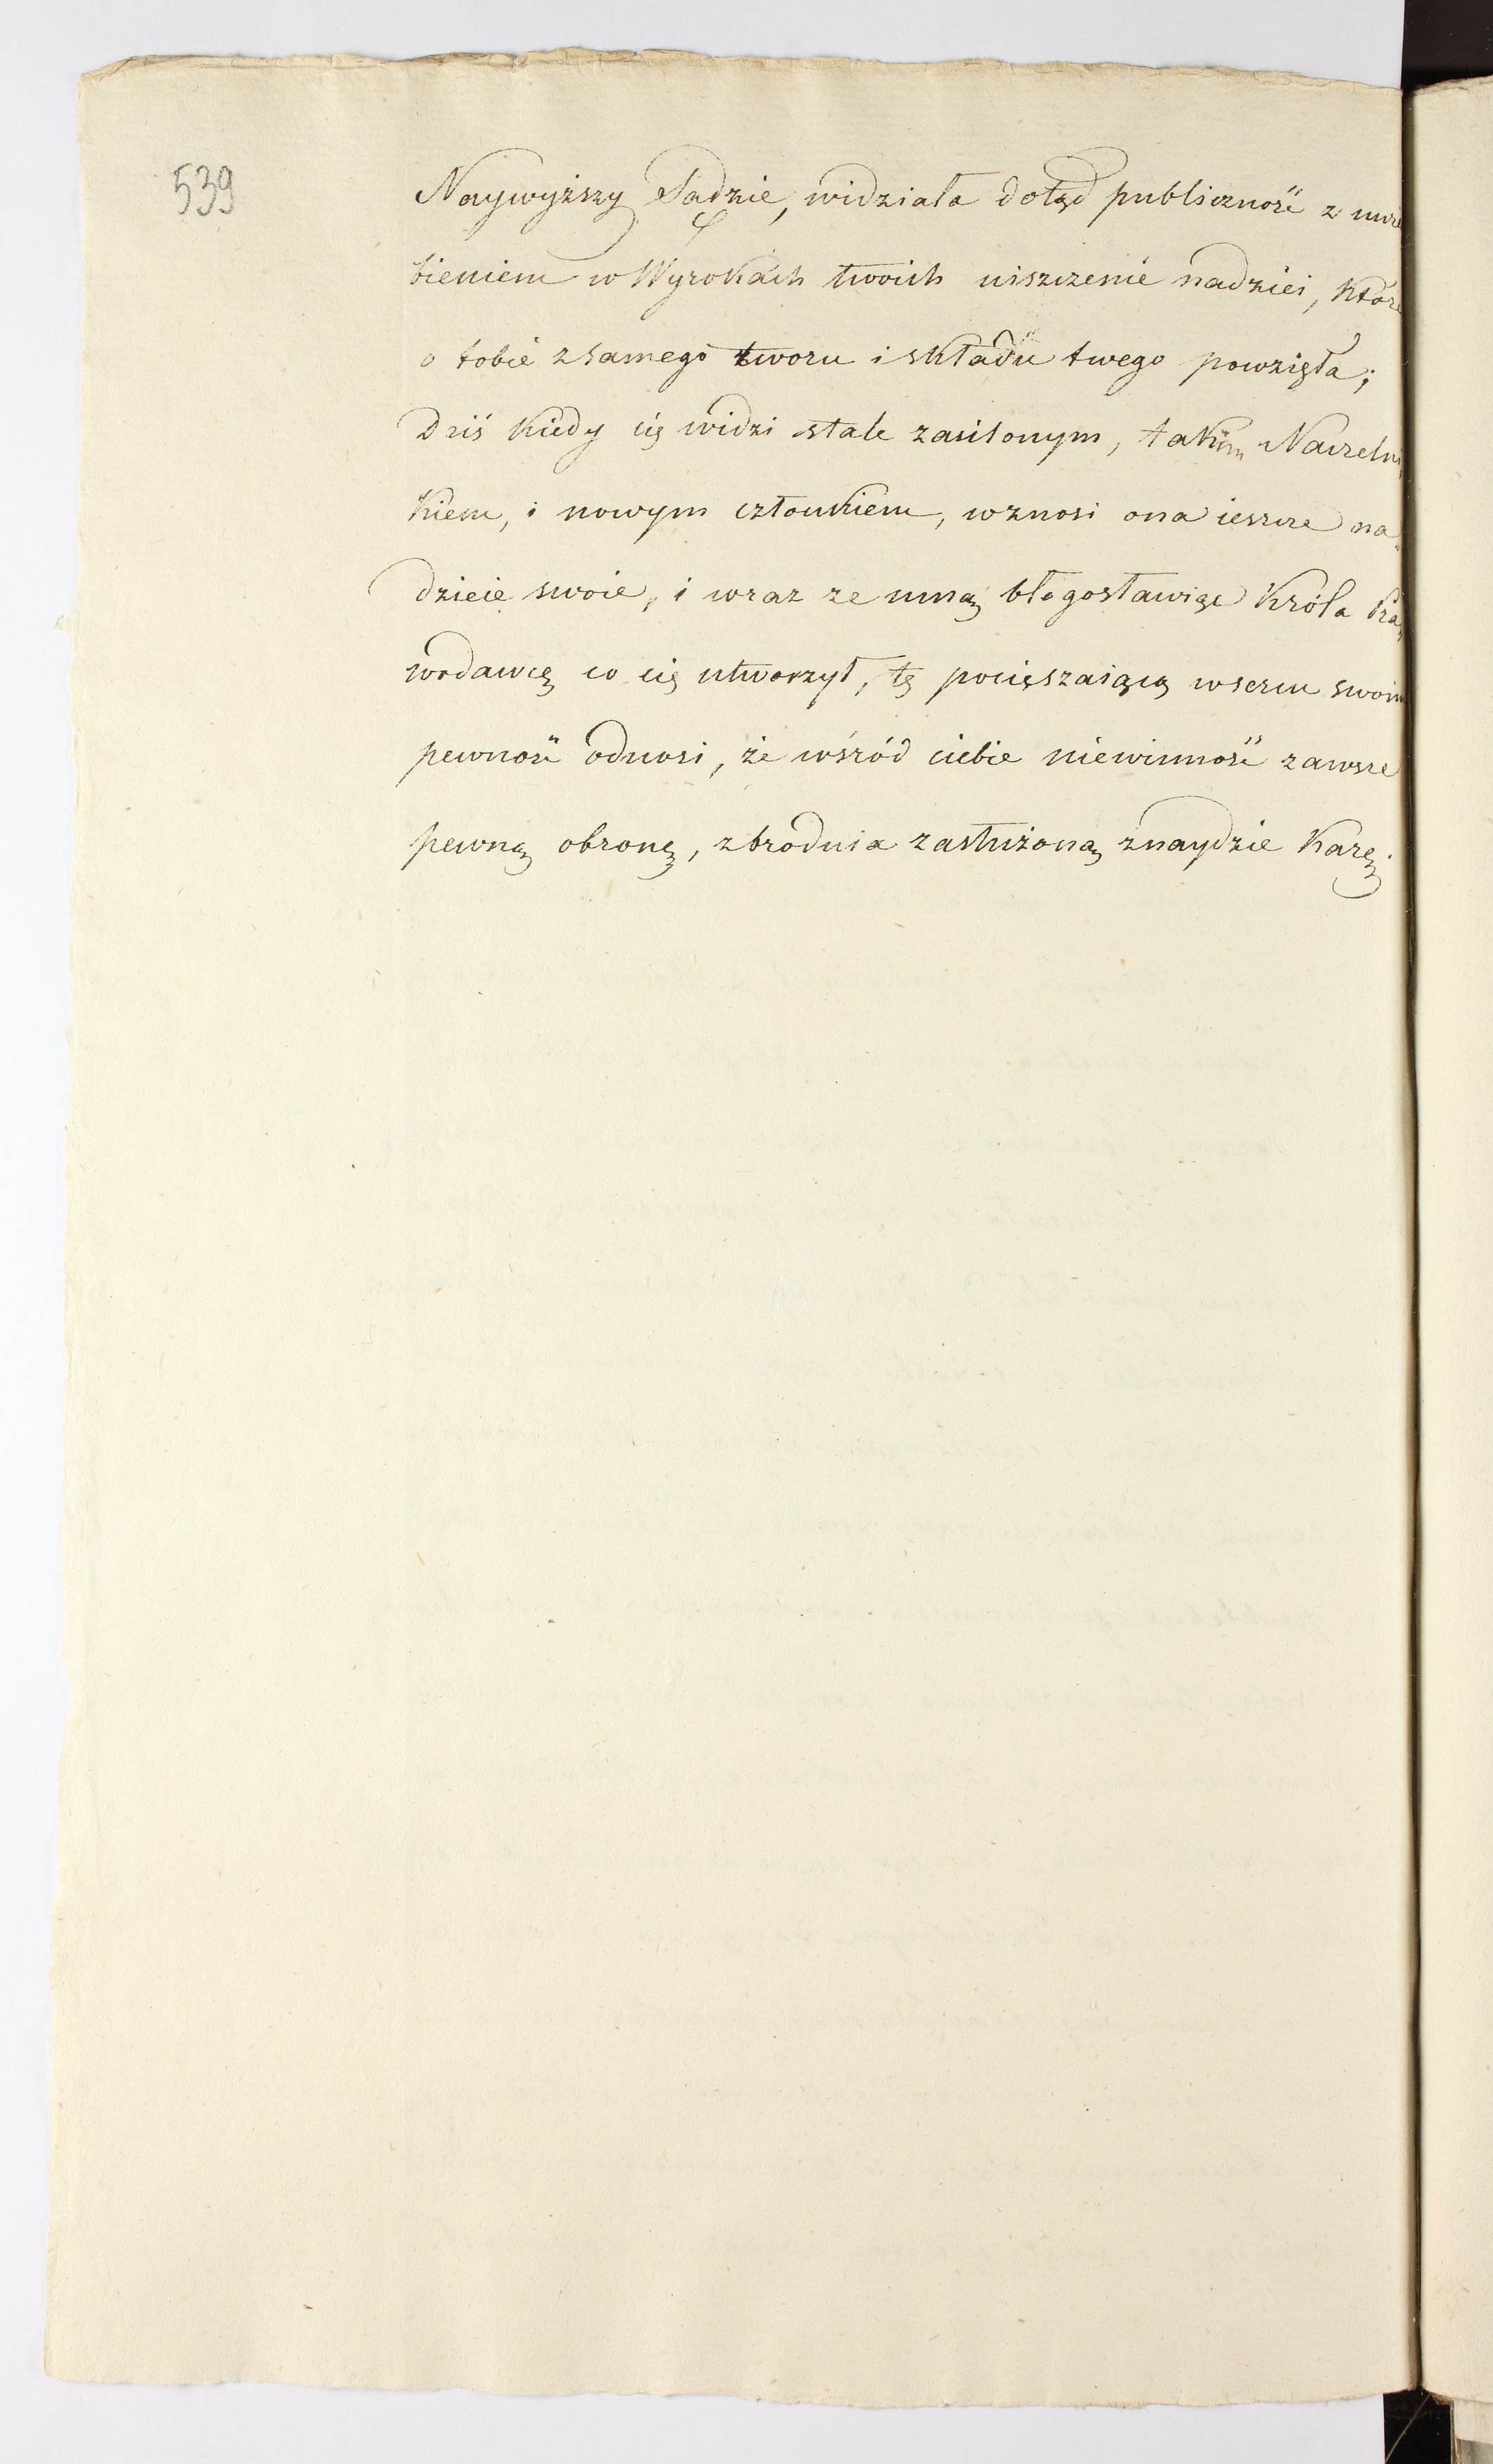 539
Naywyższy Sądzie, widziała dotąd publiczność z uwie
bieniem w Wyrokach twoich uiszczenie nadziei, które
o tobie z samego tworu i składu twego powzięła;
Dziś kiedy cię widzi stale zasilonym, takim Naczelni
kiem, i nowym członkiem, wznosi ona ieszcze na
dzieie swoie, i wraz ze mną błogosławiąc Króla Pra
wodawcę co cię utworzył, tę pocięszaiącą w sercu swoim
pewność odnosi, że wśród ciebie niewinność zawsze
pewną obronę, zbrodnia zasłużoną znaydzie karę.